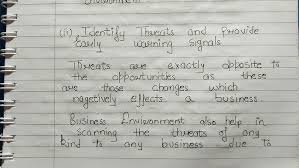 Environment
(ii) Identify Threats and provide
Early warning signals
Threats are exactly opposite to
the opportunities as these
are those changes which
negetively effects a business.
Business Environment also help in
Scanning the threats of any
kind to any business due to